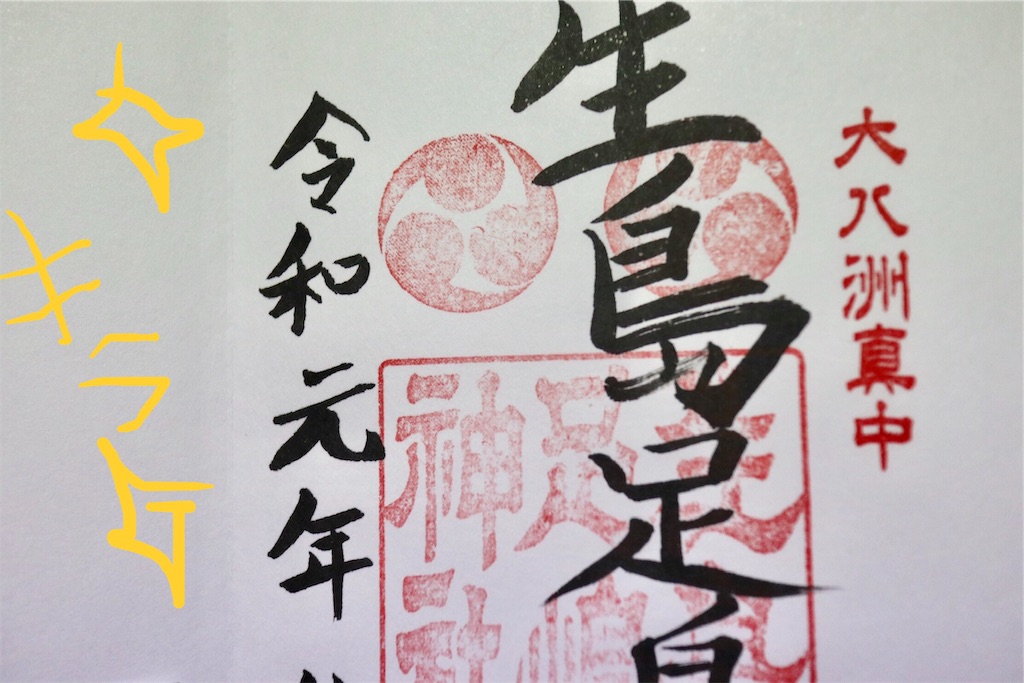 大八洲真中
生島足
生
足嶋
神社
令和元年
キラ